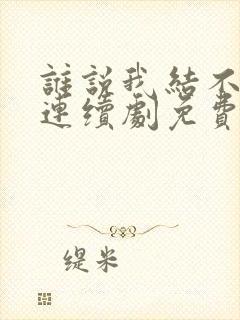 誰説我結不
連續劇免費
缇米